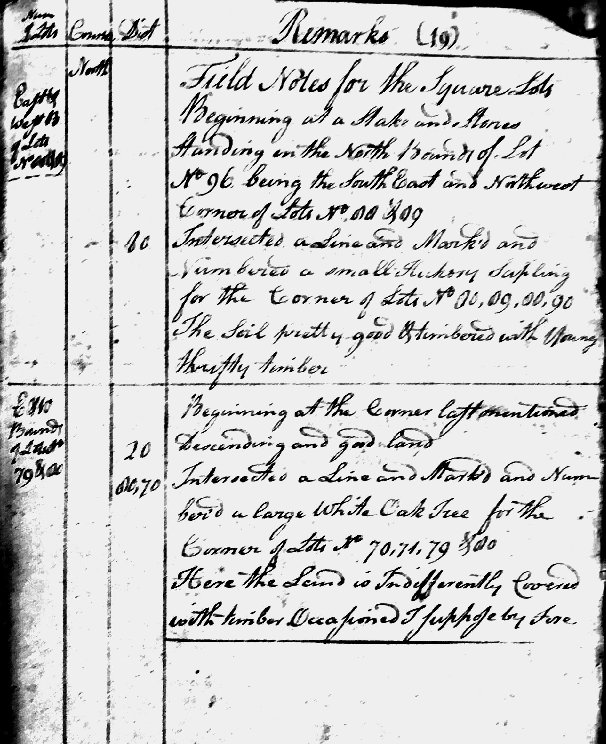 Num of Lots Course Dist Remarks (19)
North
East &
West B
of Lots
Field Notes for the Square Lots
Beginning at a Stake and Stones
Standing in the North Bounds of Lot
No 96 being the South East and Northwest
Corner of Lots No
80 Intersected a Line and Mark'd and
Numbered a small Hickory Sapling
for the Corner of Lots No
The Soil pretty good & timbered with Young
thrifty timber
E & W
Bounds
of Lots No
79 & 80
Beginning at the Corner last mentioned
20 Descending and good land
80,70 Intersected a Line and Mark'd and Num
ber'd a large White Oak Tree for the
Corner of Lots No 70,71,79 & 80
Here the Land is Indifferently Covered
with timber Occasioned I suppose by Fire